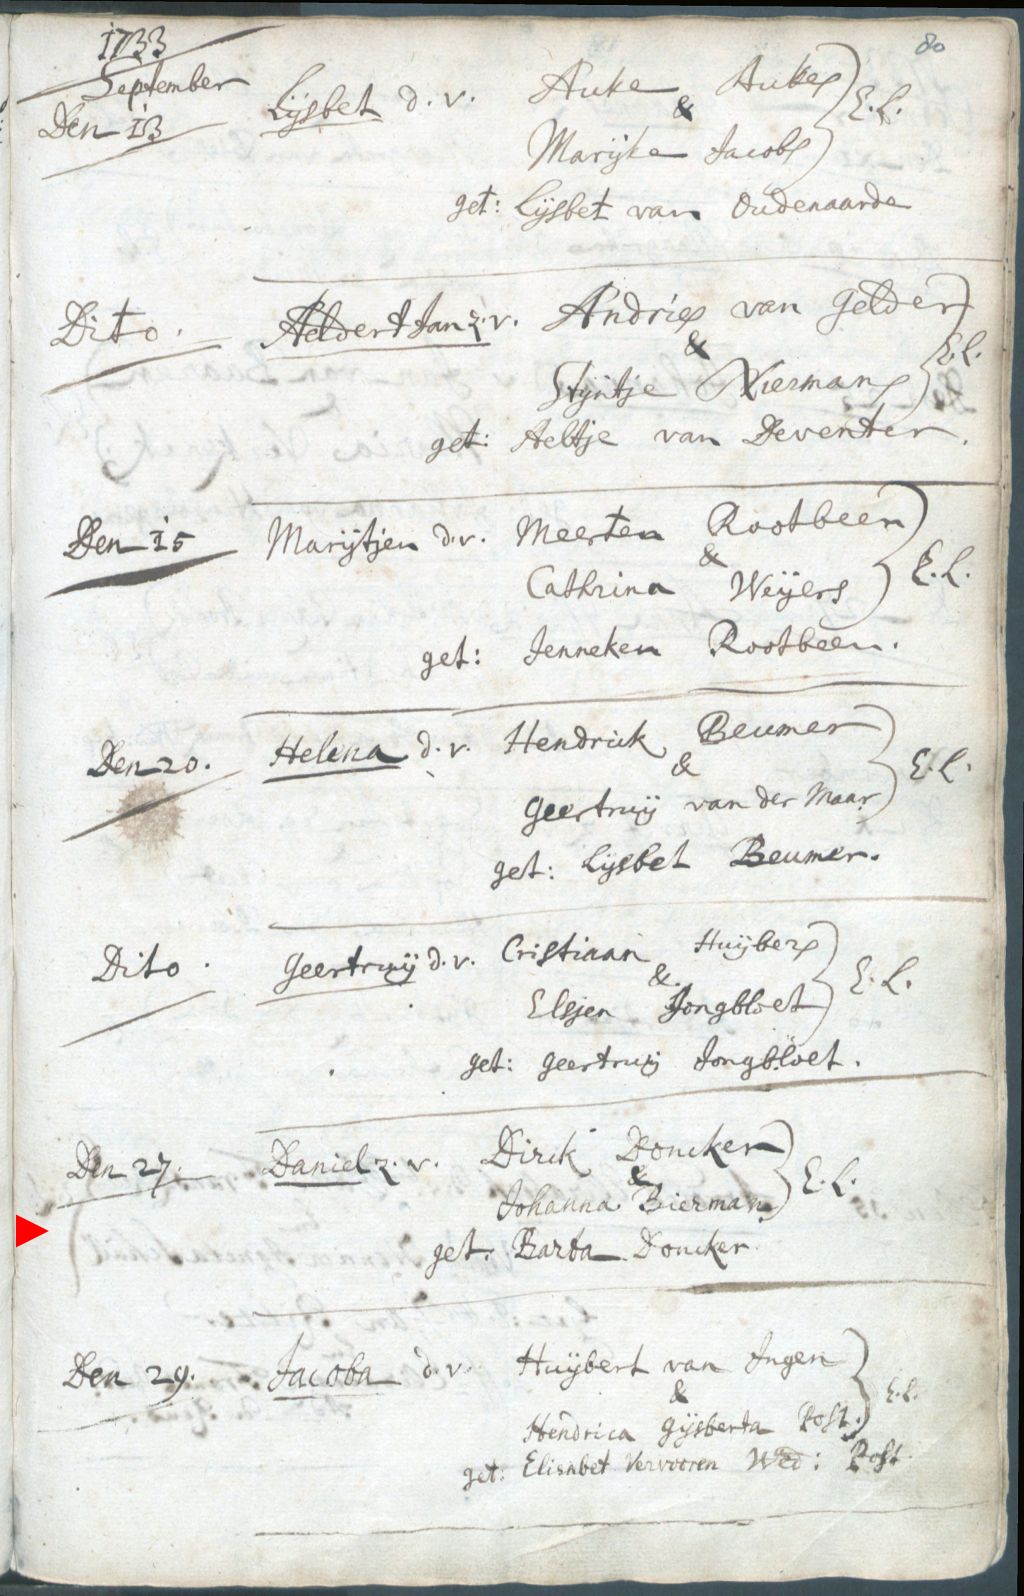 80
1733
September
Den 13 Lijsbet d. v. Auke Aukes
&
Marijke Jacobs E. L.
get: Lijsbet van Oudenaarde
Dito. Aeldert Jan z. v. Andries van Gelder
&
Stijntje Niermans E. L.
get: Aeltje van Deventer.
Den 15 Marijtjen d. v. Meerten Rootbeen
&
Cathrina Weijers E. L.
get: Jenneken Rootbeen.
Den 20. Helena d. v. Hendrick Beumer
&
Geertruij van der Maar E. L.
get: Lijsbet Beumer.
Dito. Geertruij d. v. Cristiaan Huijbers
&
Elsjen Jongbloet E. L.
get: Geertruij Jongbloet.
Den 27. Daniel z. v. Dirck Doncker
&
Johanna Bierman E. L.
get. Barta Doncker.
Den 29. Jacoba d. v. Huijbert van Ingen
&
Hendrica Gijsberta Post. E. L.
get: Elisabet Vervooren Wed: Post.